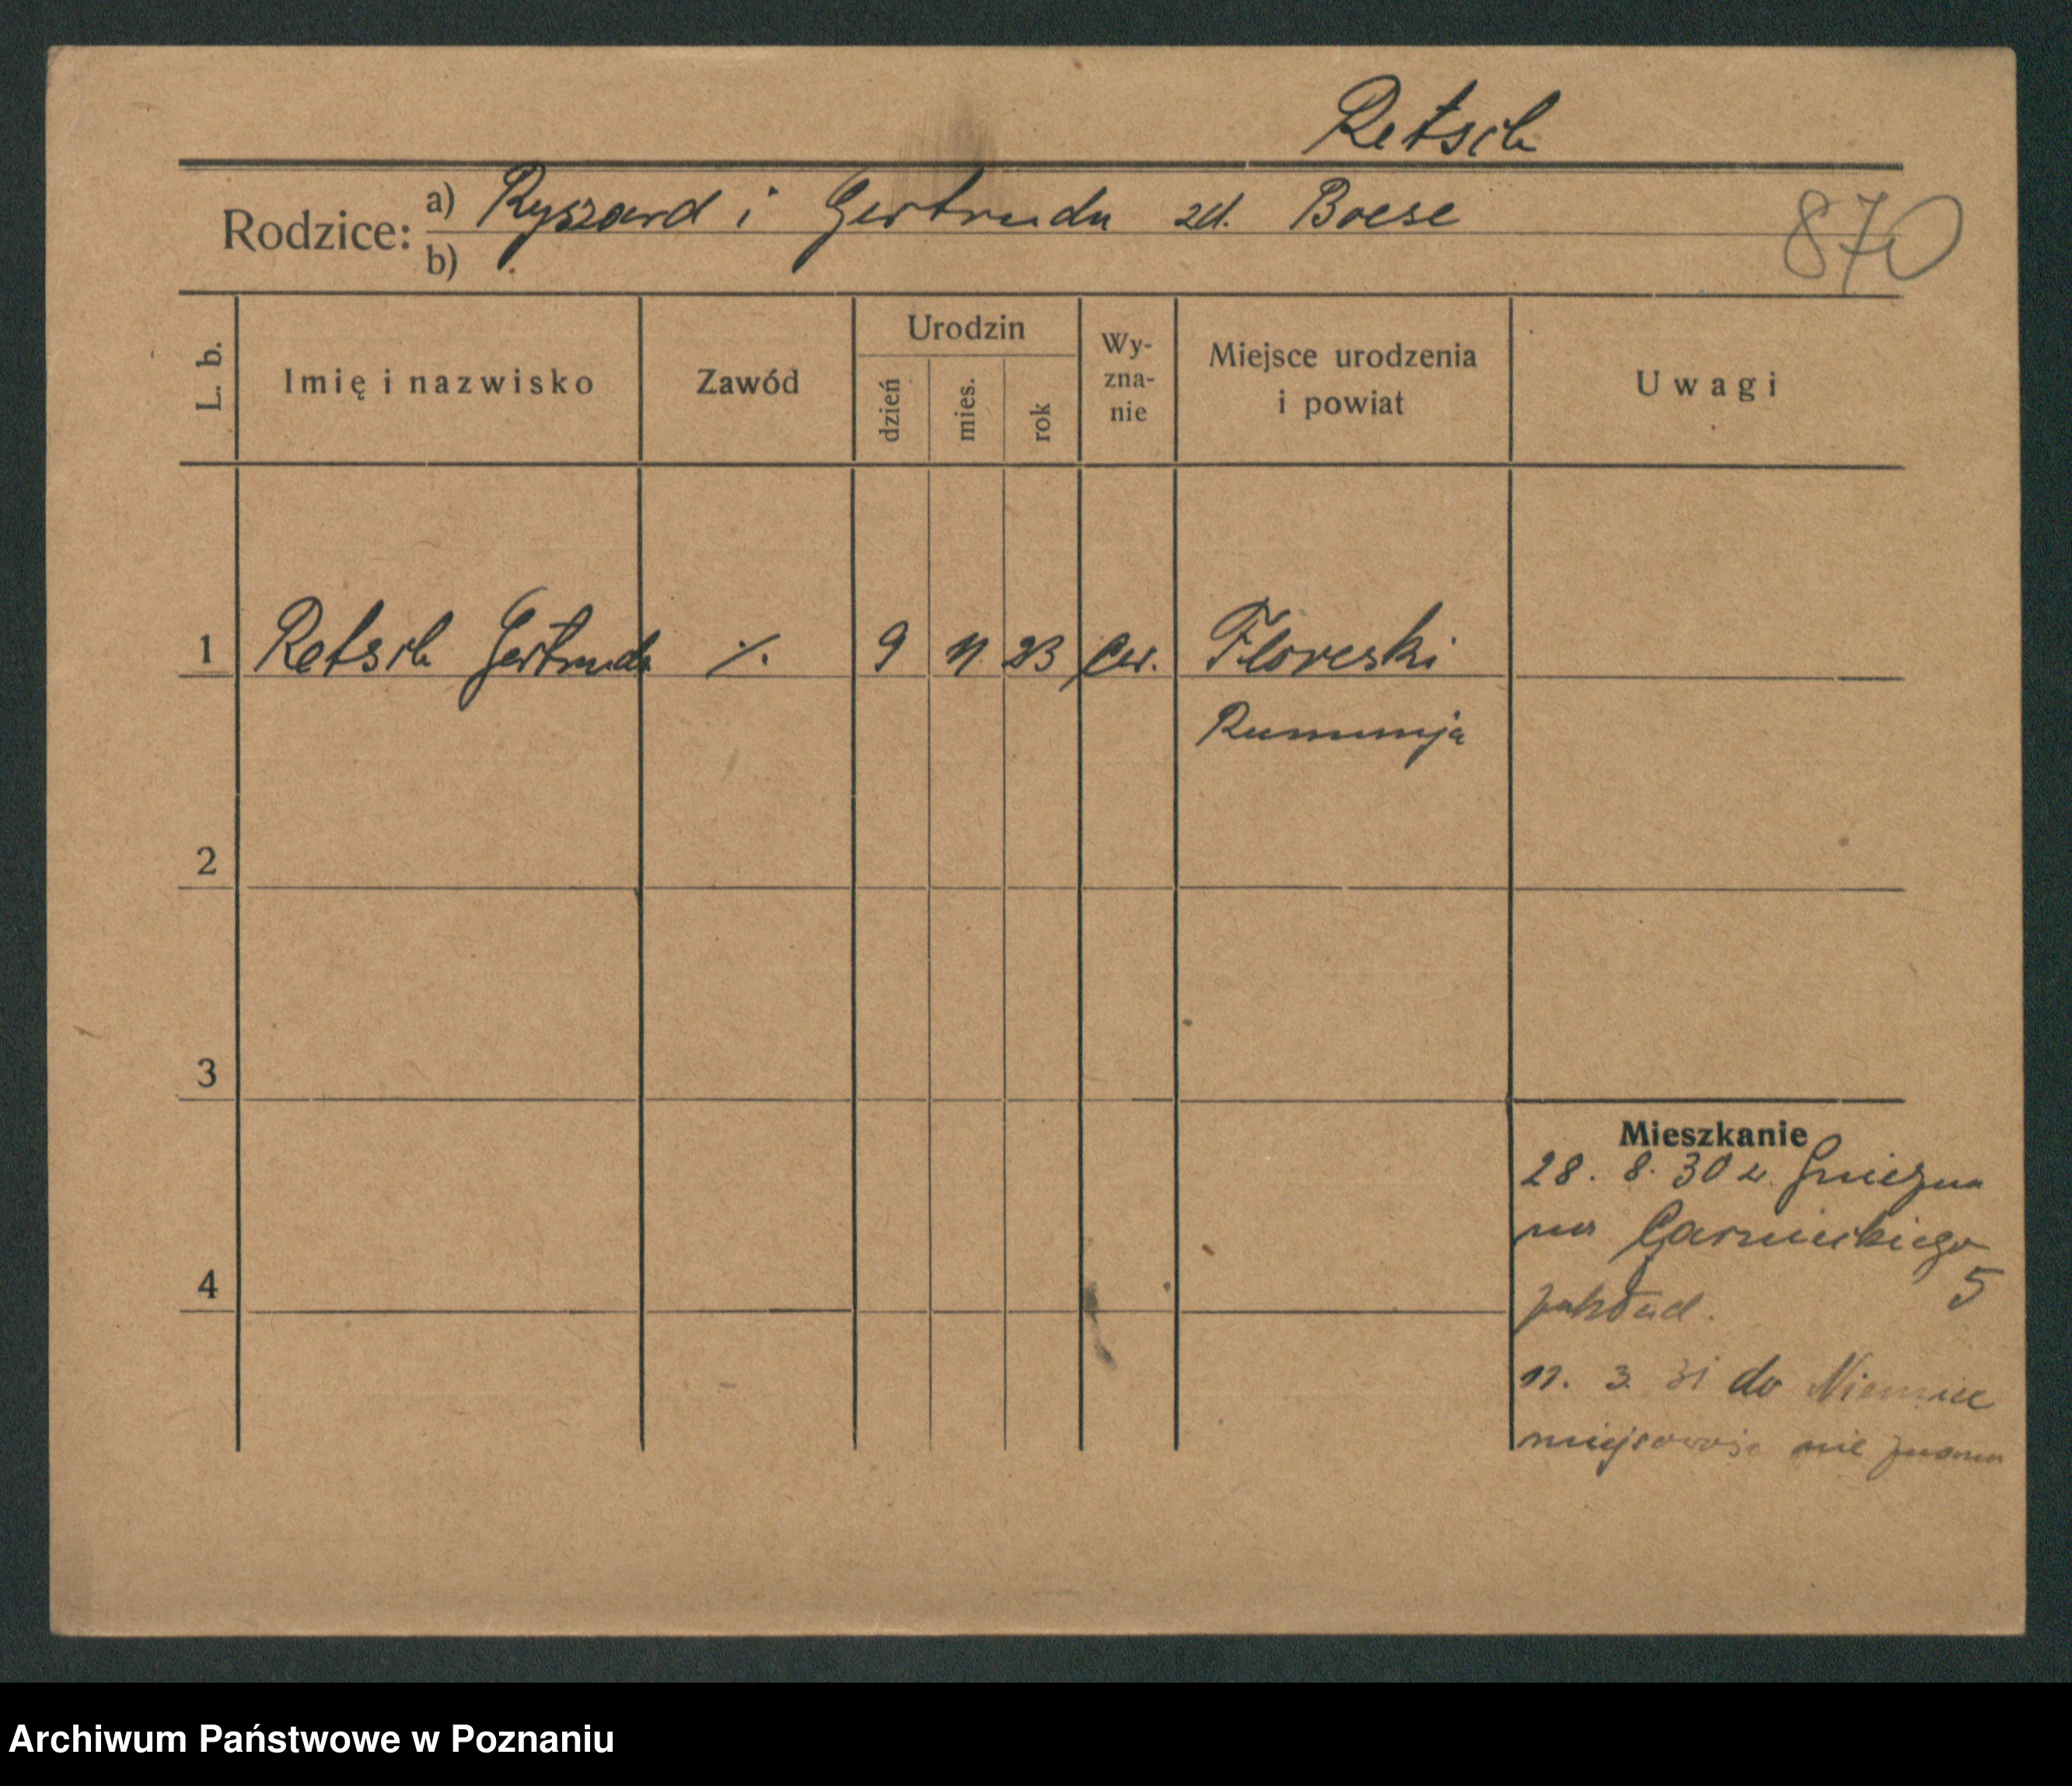 Retsch
Rodzice: a) Ryszard i Gertruda zd. Boese
b)
870
L. b.
Imię i nazwisko
Zawód
Urodzin
dzień
mies.
rok
Wy-
zna-
nie
Miejsce urodzenia
i powiat
Uwagi
1 Retsch Gertruda ·/. 9 11 23 ew. Floreski
Rumunja
2
3
4
Mieszkanie
28. 8. 30 z Gniezna
na Czarnieckiego
5
zakład.
11. 3. 31 do Niemiec
miejscowość nie znana
Archiwum Państwowe w Poznaniu